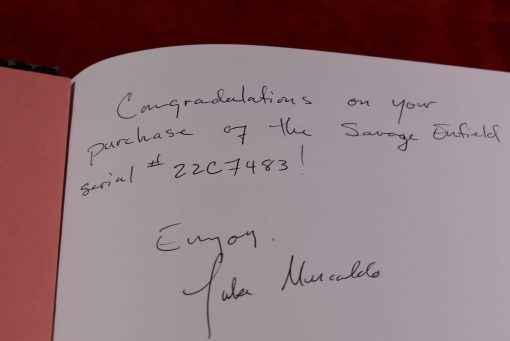 Congradulations on your
purchase of the Savage Enfield
serial # 22C7483!
Enjoy.